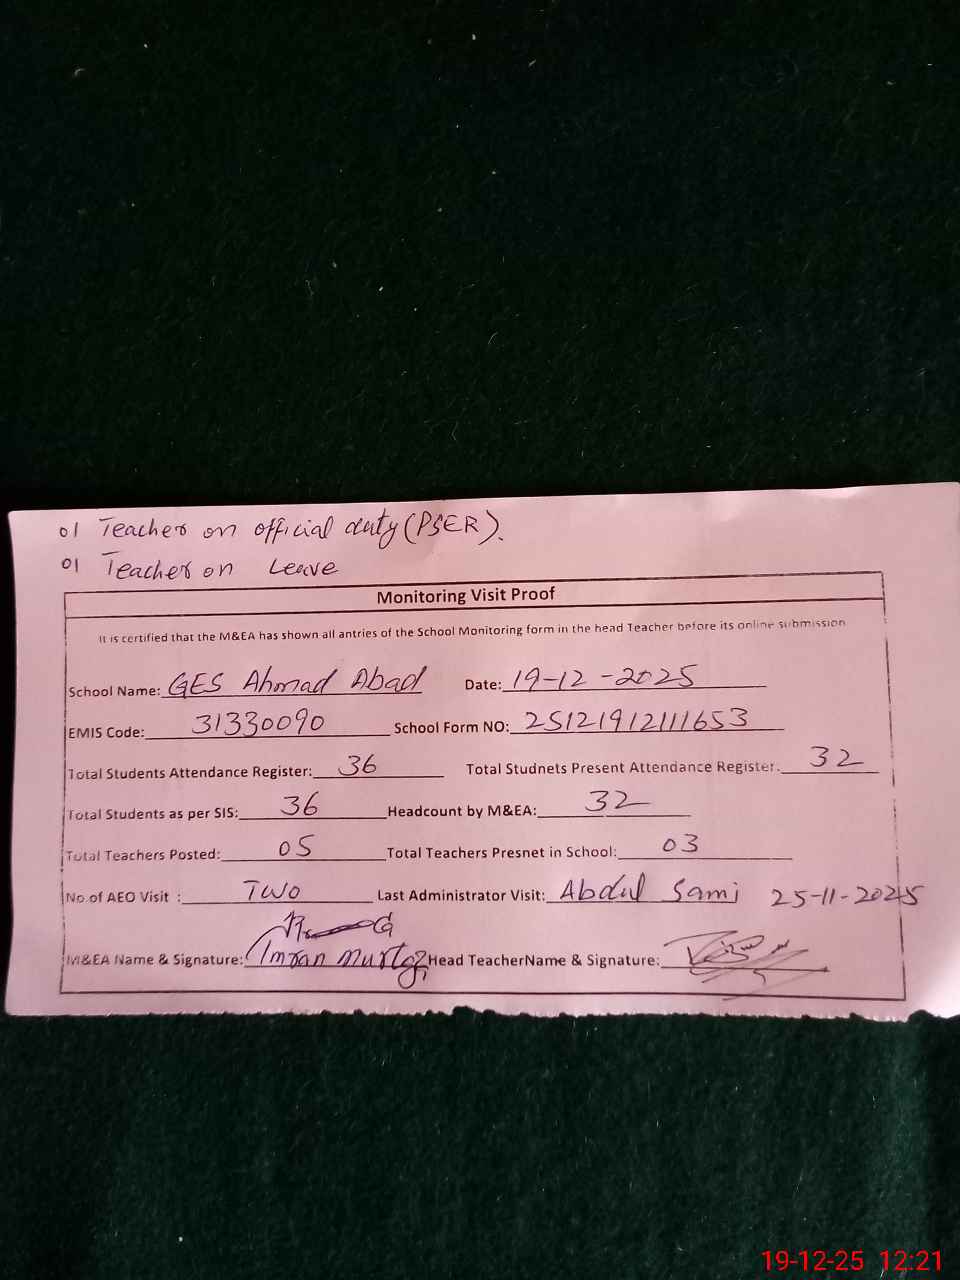 01 Teacher on official duty (PSER).
01 Teacher on Leave
Monitoring Visit Proof
It is certified that the M&EA has shown all antries of the School Monitoring form in the head Teacher before its online submission
School Name: GES Ahmad Abad Date: 19-12-2025
EMIS Code: 31330090 School Form NO: 25121912111653
Total Students Attendance Register: 36 Total Studnets Present Attendance Register: 32
Total Students as per SIS: 36 Headcount by M&EA: 32
Total Teachers Posted: 05 Total Teachers Presnet in School: 03
No of AEO Visit : Two Last Administrator Visit: Abdul Sami 25-11-2025
M&EA Name & Signature: Imran Murtaza Head TeacherName & Signature:
19-12-25 12:21